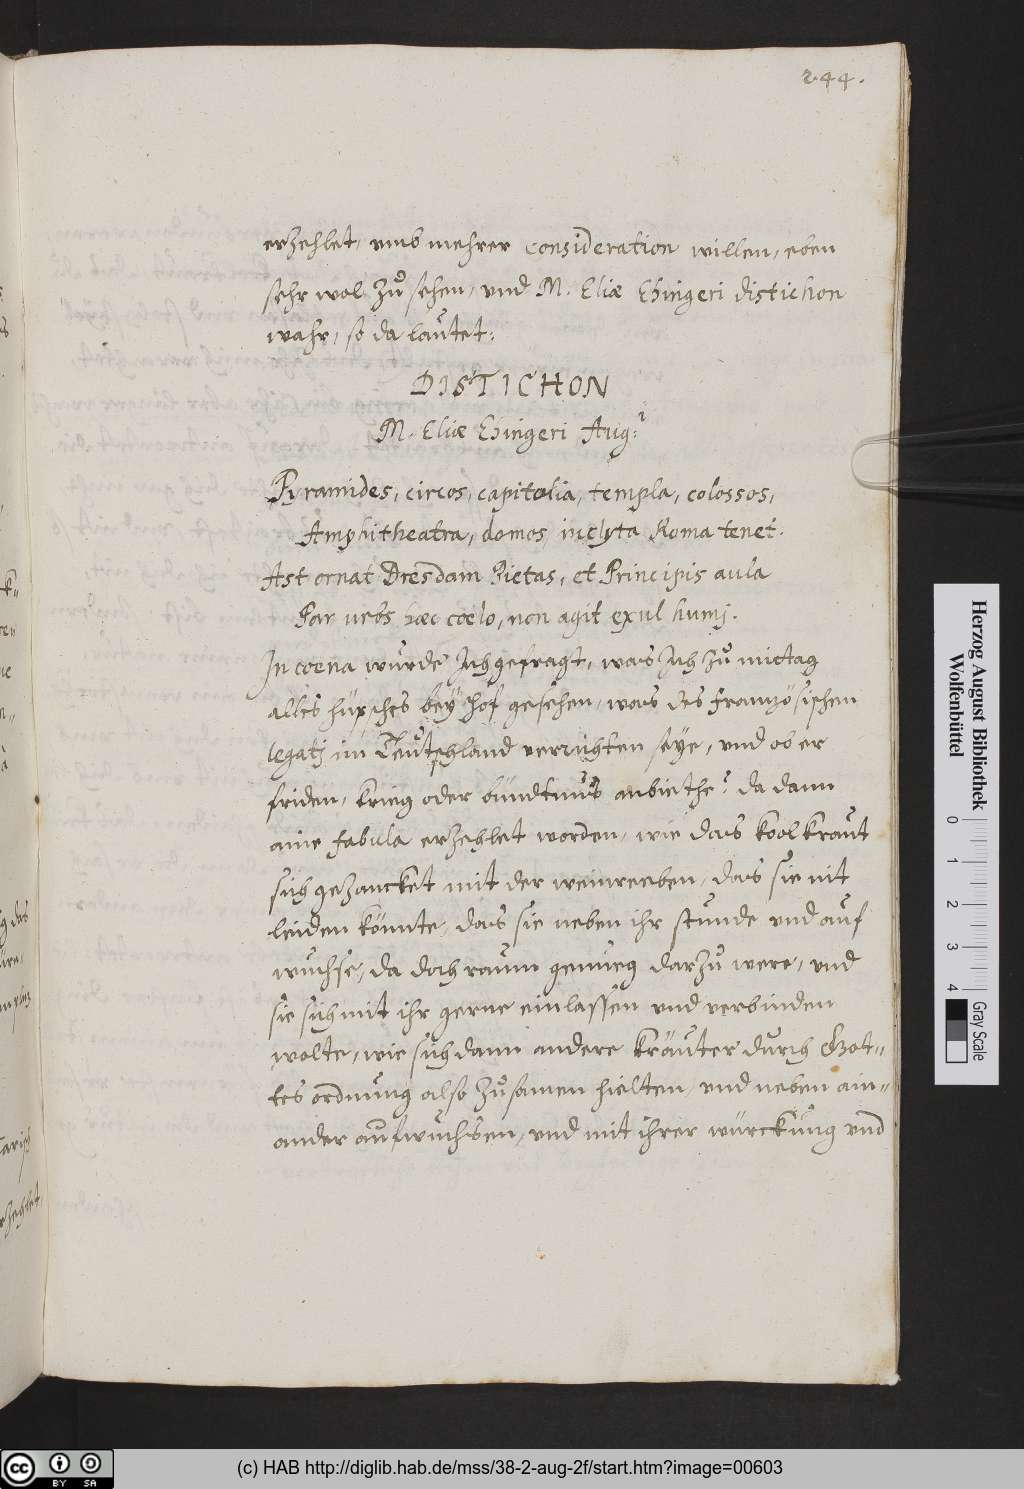 244.
erzehlet, vmb mehrer consideration willen, eben
sehr wol zů sehen, vnd M. Eliæ Ehingeri distichon
wahr, so da lautet:
DISTICHON
M. Eliæ Ehingeri Aug:i
Pyramides, circos, capitolia, templa, colossos,
Amphitheatra, domos inclyta Roma tenet.
Ast ornat Dresdam Pietas, et Principis aula
Par urbs hæc coelo, non agit exul humj.
In coena wurde Ich gefragt, was Ich zů mittag
alles hüpsches beÿ hof gesehen, was des französischen
legatj im Teutschland verrichten seÿe, vnd ob er
friden, krieg oder bündtnus anbiethe? da dann
aine fabula erzehlet worden, wie das koolkraut
sich gezancket mit der weinreeben, das sie nit
leiden könnte, das sie neben ihr stunde vnd auf
wuchse, da doch raum genueg darzů were, vnd
sie sich mit ihr gerne einlassen vnd verbinden
wolte, wie sich dann andere kräuter durch Got=
tes ordnung also zůsamen hielten, vnd neben ain=
ander aufwuchsen, vnd mit ihrer würckung vnd
Herzog August Bibliothek
Wolfenbüttel
0 1 2 3 4
Gray Scale
cc BY SA
(c) HAB http://diglib.hab.de/mss/38-2-aug-2f/start.htm?image=00603